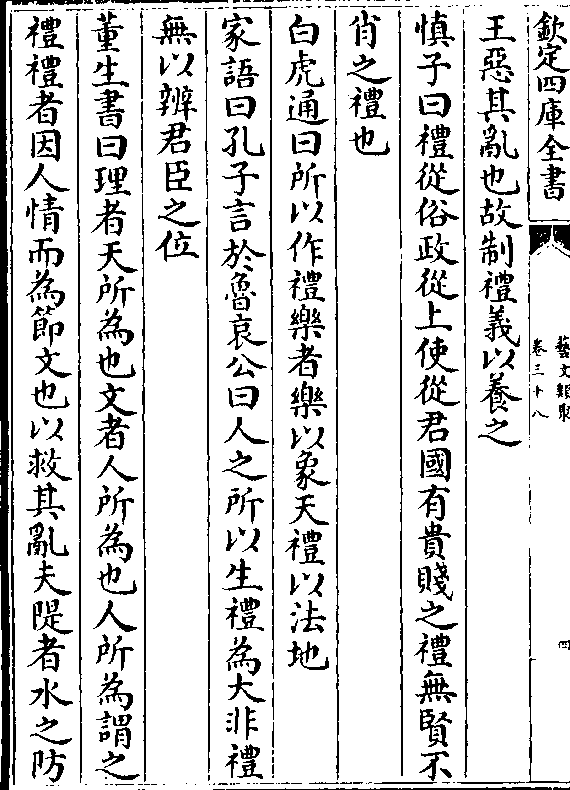 欽定四庫全書
藝文類聚
卷三十八
四
王惡其亂也故制禮義以養之
慎子曰禮從俗政從上使從君國有貴賤之禮無賢不
肖之禮也
白虎通曰所以作禮樂者樂以象天禮以法地
家語曰孔子言於魯哀公曰人之所以生禮為大非禮
無以辨君臣之位
董生書曰理者天所為也文者人所為也人所為謂之
禮禮者因人情而為節文也以救其亂夫隄者水之防